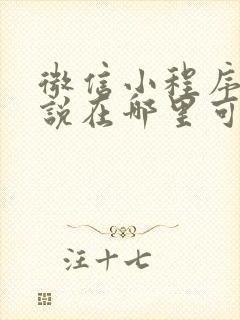 微信小程序
說在哪里可
汪十七